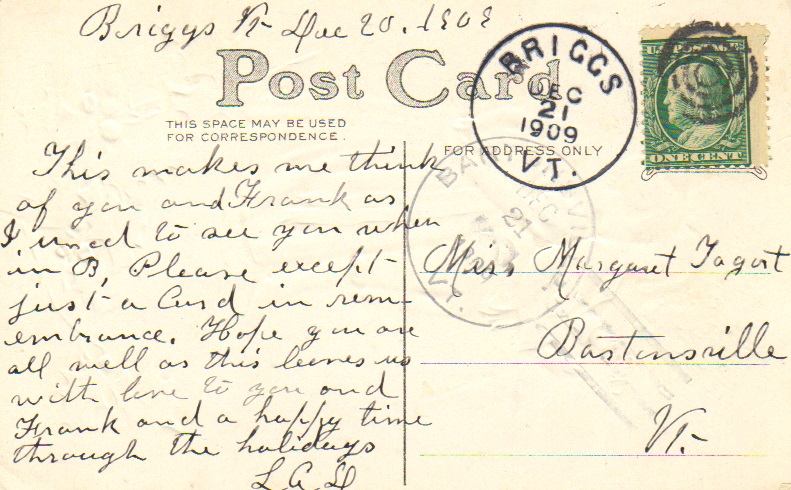 Briggs Vt- Dec 20, 1909
Post Card
THIS SPACE MAY BE USED
FOR CORRESPONDENCE.
FOR ADDRESS ONLY
BRIGGS
DEC
21
1909
VT.
U.S. POSTAGE
ONE CENT
DEC
21
This makes me think
of you and Frank as
I used to see you when
in B, Please except
just a Card in rem-
embrance. Hope you are
all well as this leaves us
with love to you and
Frank and a happy time
through the holidays
L A D
Miss Margaret Tagart
Bartonsville
Vt-